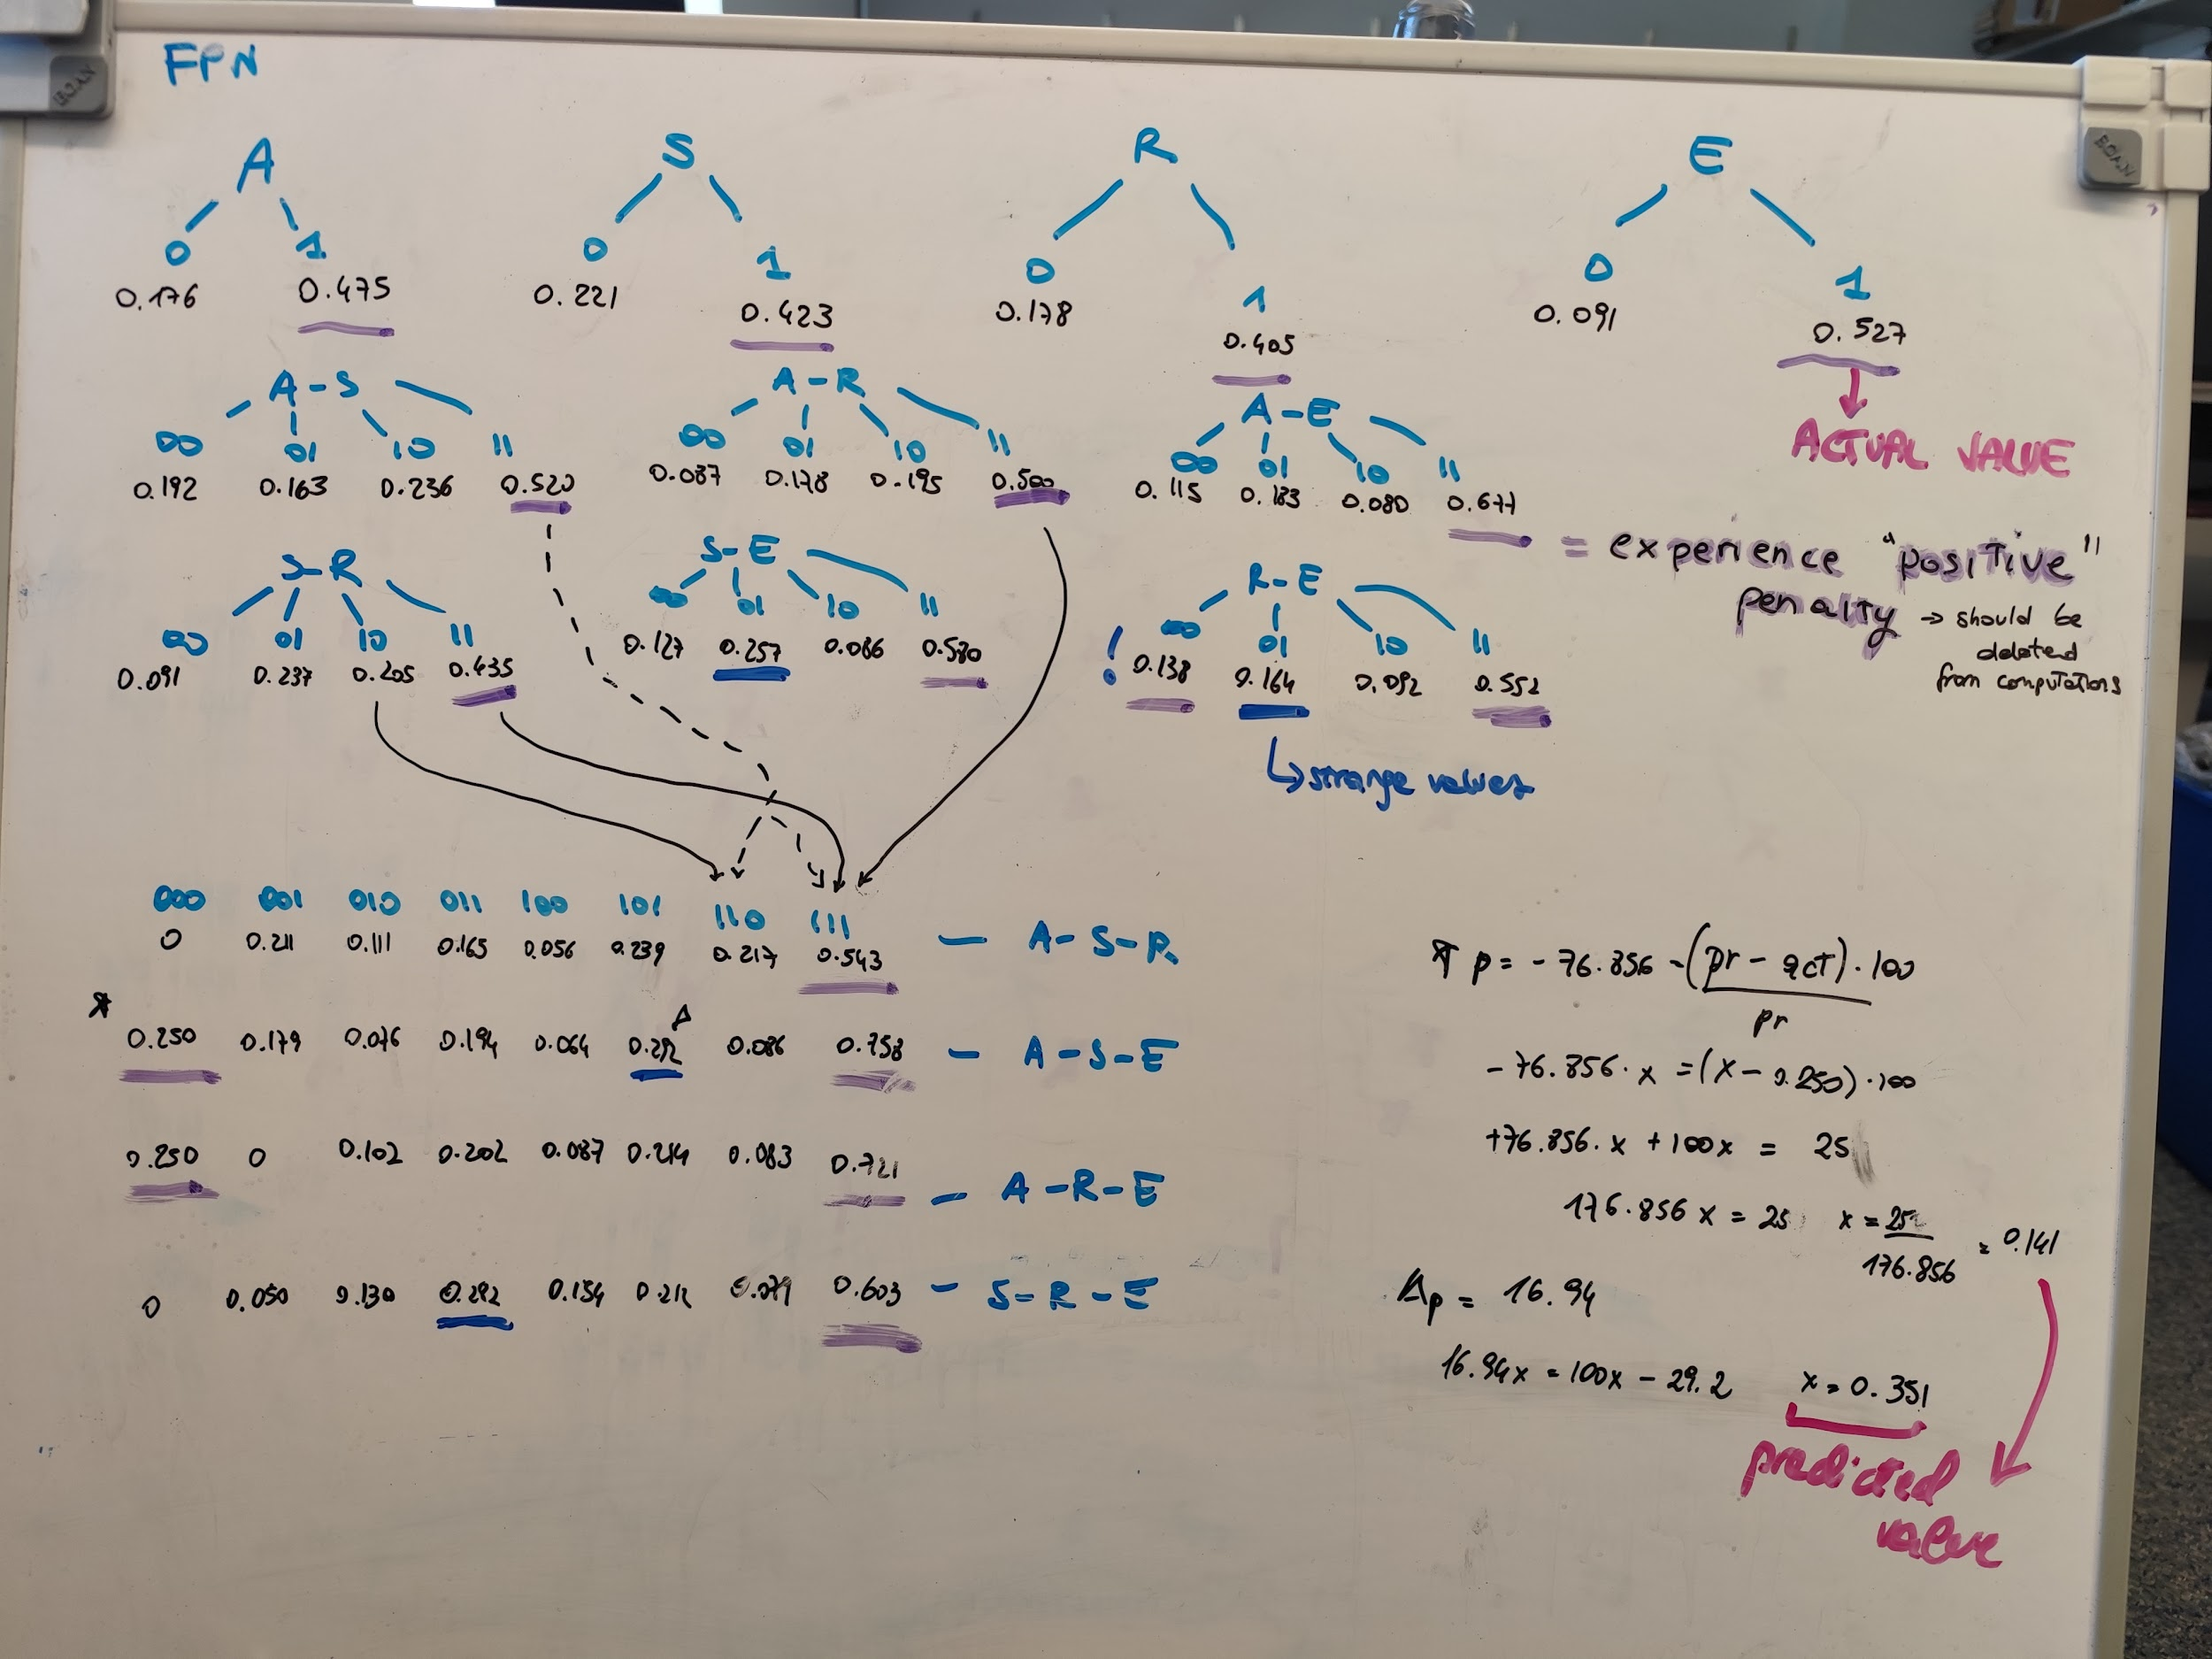 FPN
A
0 1
0.176 0.475
S
0 1
0.221 0.423
R
0 1
0.178 0.405
E
0 1
0.091 0.527
ACTUAL VALUE
A-S
00 01 10 11
0.192 0.163 0.236 0.520
A-R
00 01 10 11
0.087 0.178 0.195 0.500
A-E
00 01 10 11
0.115 0.183 0.080 0.677
= experience "positive"
penalty → should be
deleted
from computations
S-R
00 01 10 11
0.091 0.237 0.205 0.435
S-E
00 01 10 11
0.127 0.257 0.086 0.580
R-E
00 01 10 11
! 0.138 0.164 0.092 0.552
strange values
000 001 010 011 100 101 110 111
0 0.211 0.111 0.165 0.056 0.239 0.217 0.543 - A-S-R
0.250 0.179 0.076 0.194 0.064 0.292 0.086 0.758 - A-S-E
0.250 0 0.102 0.202 0.087 0.214 0.083 0.721 - A-R-E
0 0.050 0.130 0.292 0.154 0.212 0.603 - S-R-E
p = -76.856 = (pr - act) · 100
pr
-76.856 · x = (x - 0.250) · 100
+76.856 · x + 100x = 25
176.856 x = 25 x = 25
176.856
= 0.141
p = 16.94
16.94x = 100x - 29.2 x = 0.351
predicted
value
BOAN
BOAN